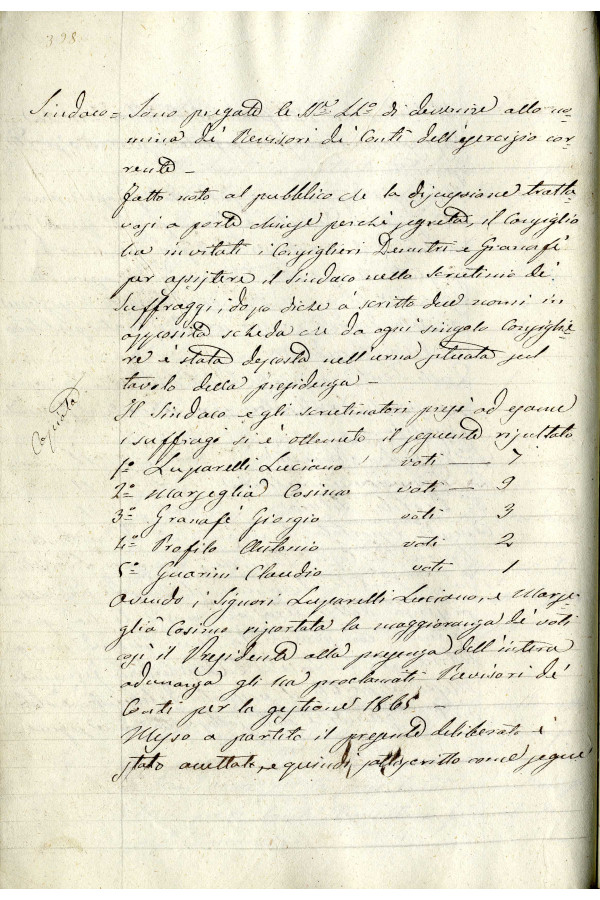 398
Sindaco = Sono pregate le di devenire alla no-
mina de' Revisori de' Conti dell'esercizio cor-
rente -
Fatto noto al pubblico che la discussione tratta-
vasi a porte chiuse perchè segreta, il Consiglio
ha invitati i Consiglieri Demitri e Granafé
per assistere il Sindaco nello scrutinio de'
suffraggi, dopo diche à scritto due nomi in
apposita scheda che da ogni singolo Consiglie-
re è stata deposta nell'urna situata sul
tavolo della presidenza -
Copiata
Il Sindaco e gli scrutinatori presi ad esame
i suffragi si è ottenuto il seguente risultato
1º Luparelli Luciano voti — 7
2º Marseglia Cosimo voti — 9
3º Granafé Giorgio voti 3
4º Profilo Antonio voti 2
5º Guarini Claudio voti 1
Avendo i Signori Luparelli Luciano, e Marse-
glia Cosimo riportata la maggioranza de' voti
così il Presidente alla presenza dell'intera
adunanza gli ha proclamati Revisori de'
Conti per la gestione 1865 -
Messo a partito il presente deliberato è
stato accettato, e quindi sottoscritto come segue